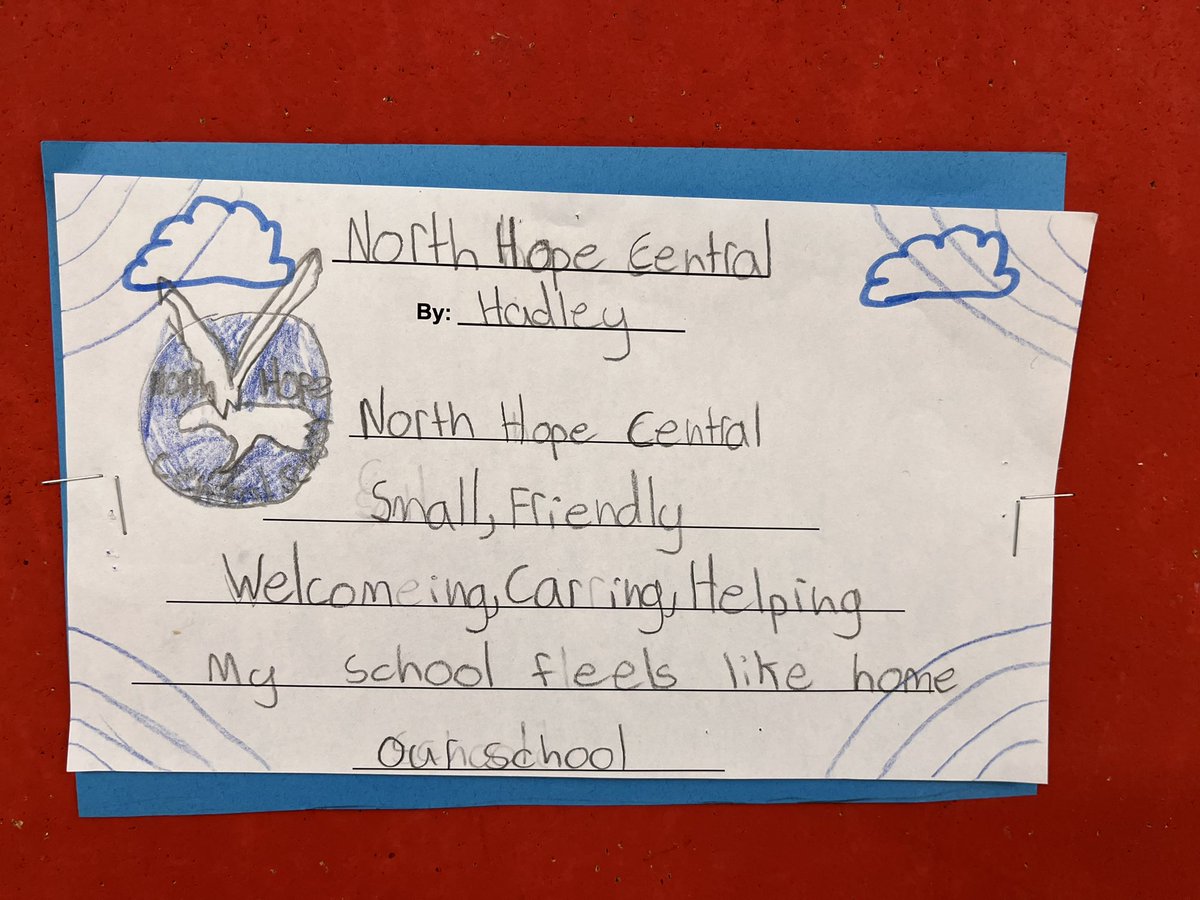 North Hope Central
By: Hadley
North Hope
North Hope Central
Small, Friendly
Welcomeing, Carring, Helping
My school feels like home
our school